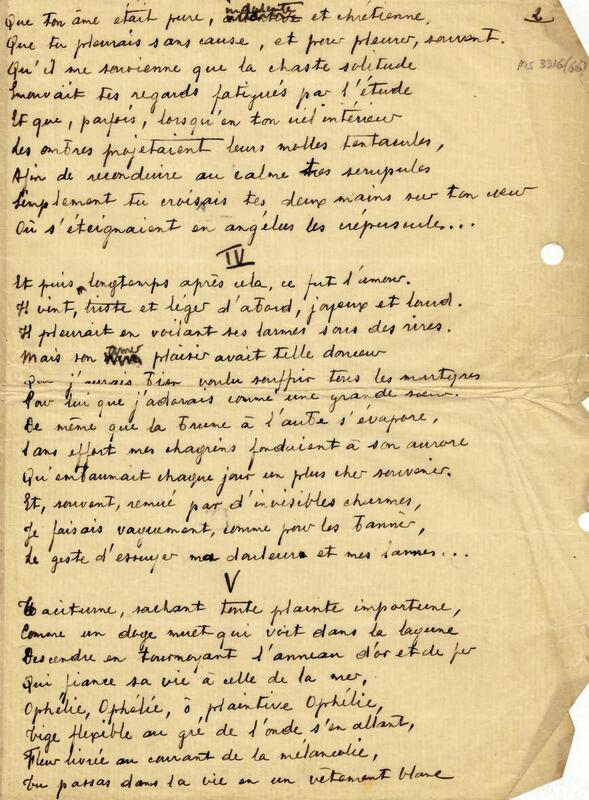 2
MS 3316/(66)
Que ton âme était pure, indolente et chrétienne,
Que tu pleurais sans cause, et pour pleurer, souvent.
Qu'il me souvienne que la chaste solitude
Emouvait tes regards fatigués par l'étude
Et que, parfois, lorsqu'en ton ciel intérieur
Les ombres projetaient leurs molles tentacules,
Afin de reconduire au calme tes scrupules
Simplement tu croisais tes deux mains sur ton cœur
Où s'éteignaient en angélus les crépuscules...
IV
Et puis, longtemps après cela, ce fut l'amour.
Il vint, triste et léger d'abord, joyeux et lourd.
Il pleurait en voilant ses larmes sous des rires.
Mais son amer plaisir avait telle douceur
Que j'aurais bien voulu souffrir tous les martyres
Pour lui que j'adorais comme une grande sœur.
De même que la brume à l'aube s'évapore,
Sans effort mes chagrins fondaient à son aurore
Qu'embaumait chaque jour un plus cher souvenir.
Et, souvent, remué par d'invisibles charmes,
Je faisais vaguement, comme pour les bannir,
Le geste d'essuyer ma douleur et mes larmes...
V
Taciturne, sachant toute plainte importune,
Comme un doge muet qui voit dans la lagune
Descendre en tournoyant l'anneau d'or et de fer
Qui fiance sa vie à celle de la mer,
Ophélie, Ophélie, ô plaintive Ophélie,
Tige flexible au gré de l'onde s'en allant,
Fleur livrée au courant de la mélancolie,
Tu passas dans la vie en un vêtement blanc